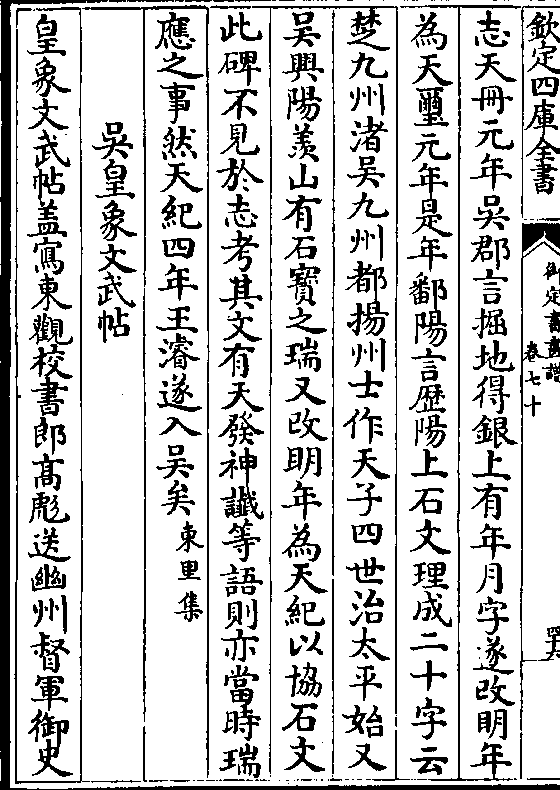 欽定四庫全書
御定書畫譜
卷七十
志天冊元年吳郡言掘地得銀上有年月字遂改明年
為天璽元年是年鄱陽言歷陽上石文理成二十字云
楚九州渚吳九州都揚州士作天子四世治太平始又
吳興陽羨山有石寶之瑞又改明年為天紀以協石文
此碑不見於志考其文有天發神讖等語則亦當時瑞
應之事然天紀四年王濬遂入吳矣東里集
吳皇象文武帖
皇象文武帖蓋寫東觀校書郎高彪送幽州督軍御史